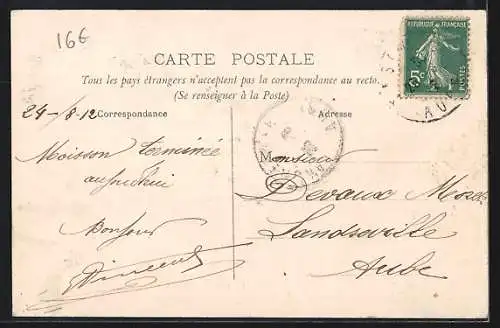 16€
CARTE POSTALE
Tous les pays étrangers n'acceptent pas la correspondance au recto.
(Se renseigner à la Poste)
24-8-12
Correspondance
Adresse
REPUBLIQUE FRANÇAISE
5c
POSTES
Moisson terminée
aujourd'hui
Bonjour
Vincent
Monsieur
Devaux
Landreville
Aube